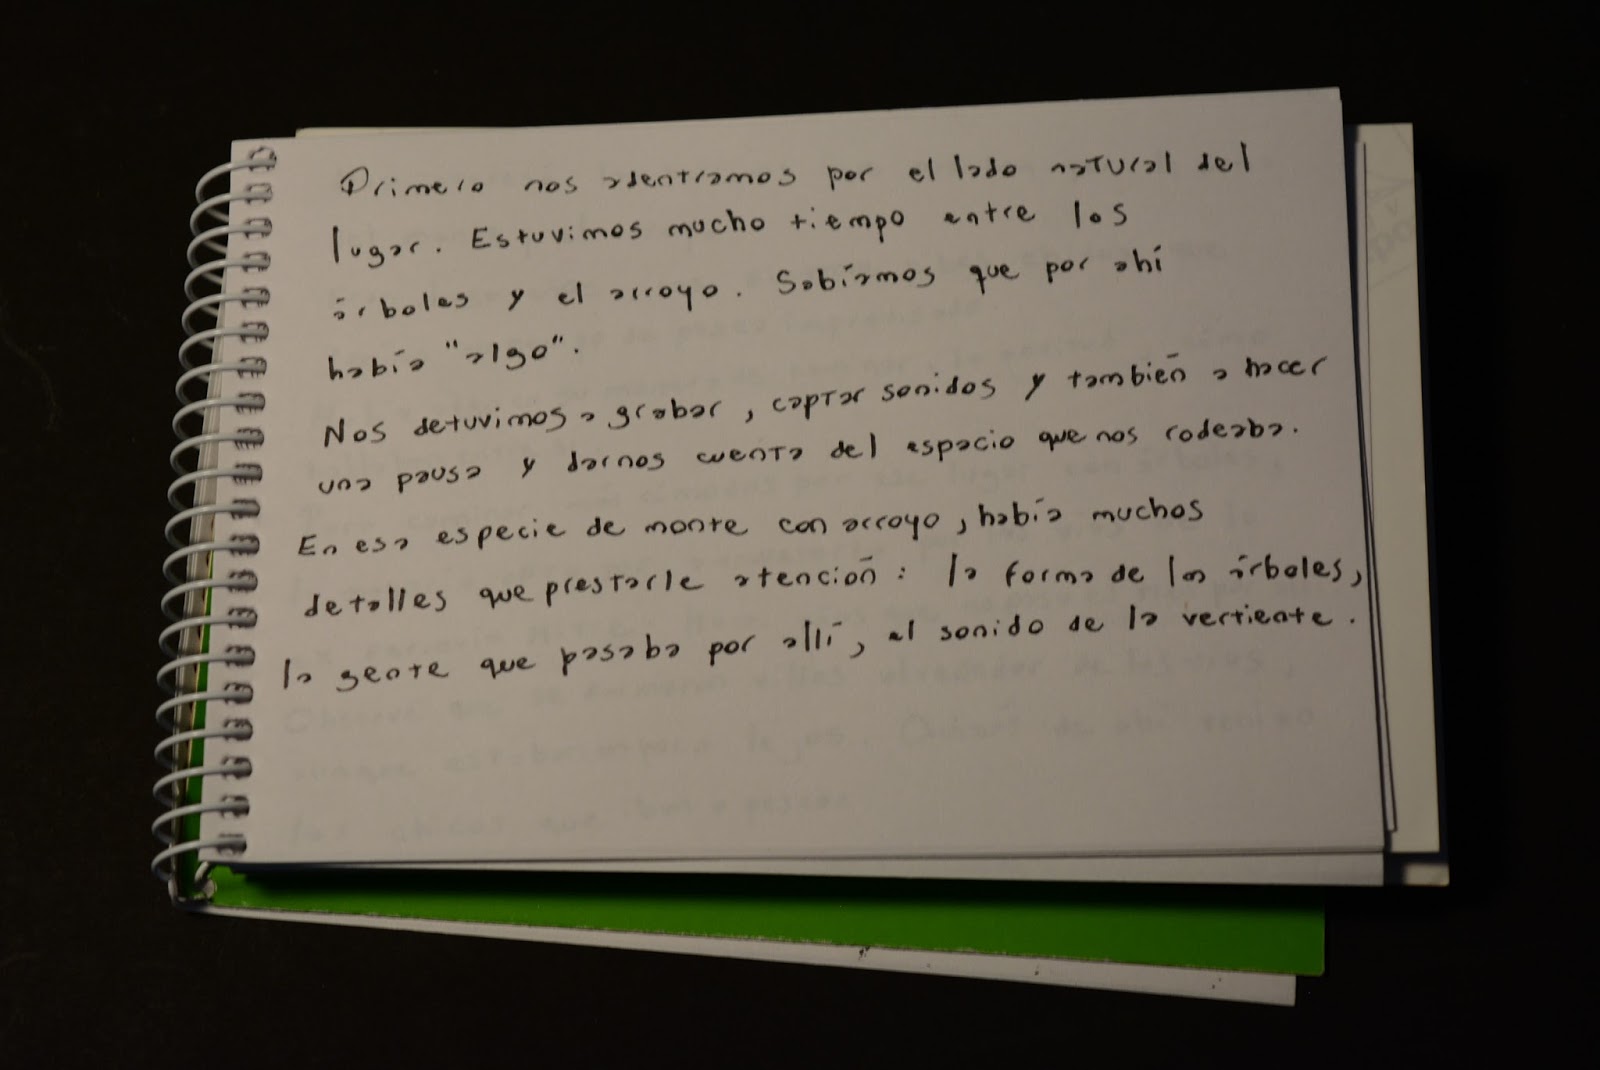 Primero nos adentramos por el lado natural del
lugar. Estuvimos mucho tiempo entre los
árboles y el arroyo. Sabíamos que por ahí
había "algo".
Nos detuvimos a grabar, captar sonidos y también a hacer
una pausa y darnos cuenta del espacio que nos rodeaba.
En esa especie de monte con arroyo, había muchos
detalles que prestarle atención: la forma de los árboles,
la gente que pasaba por allí, el sonido de la vertiente.